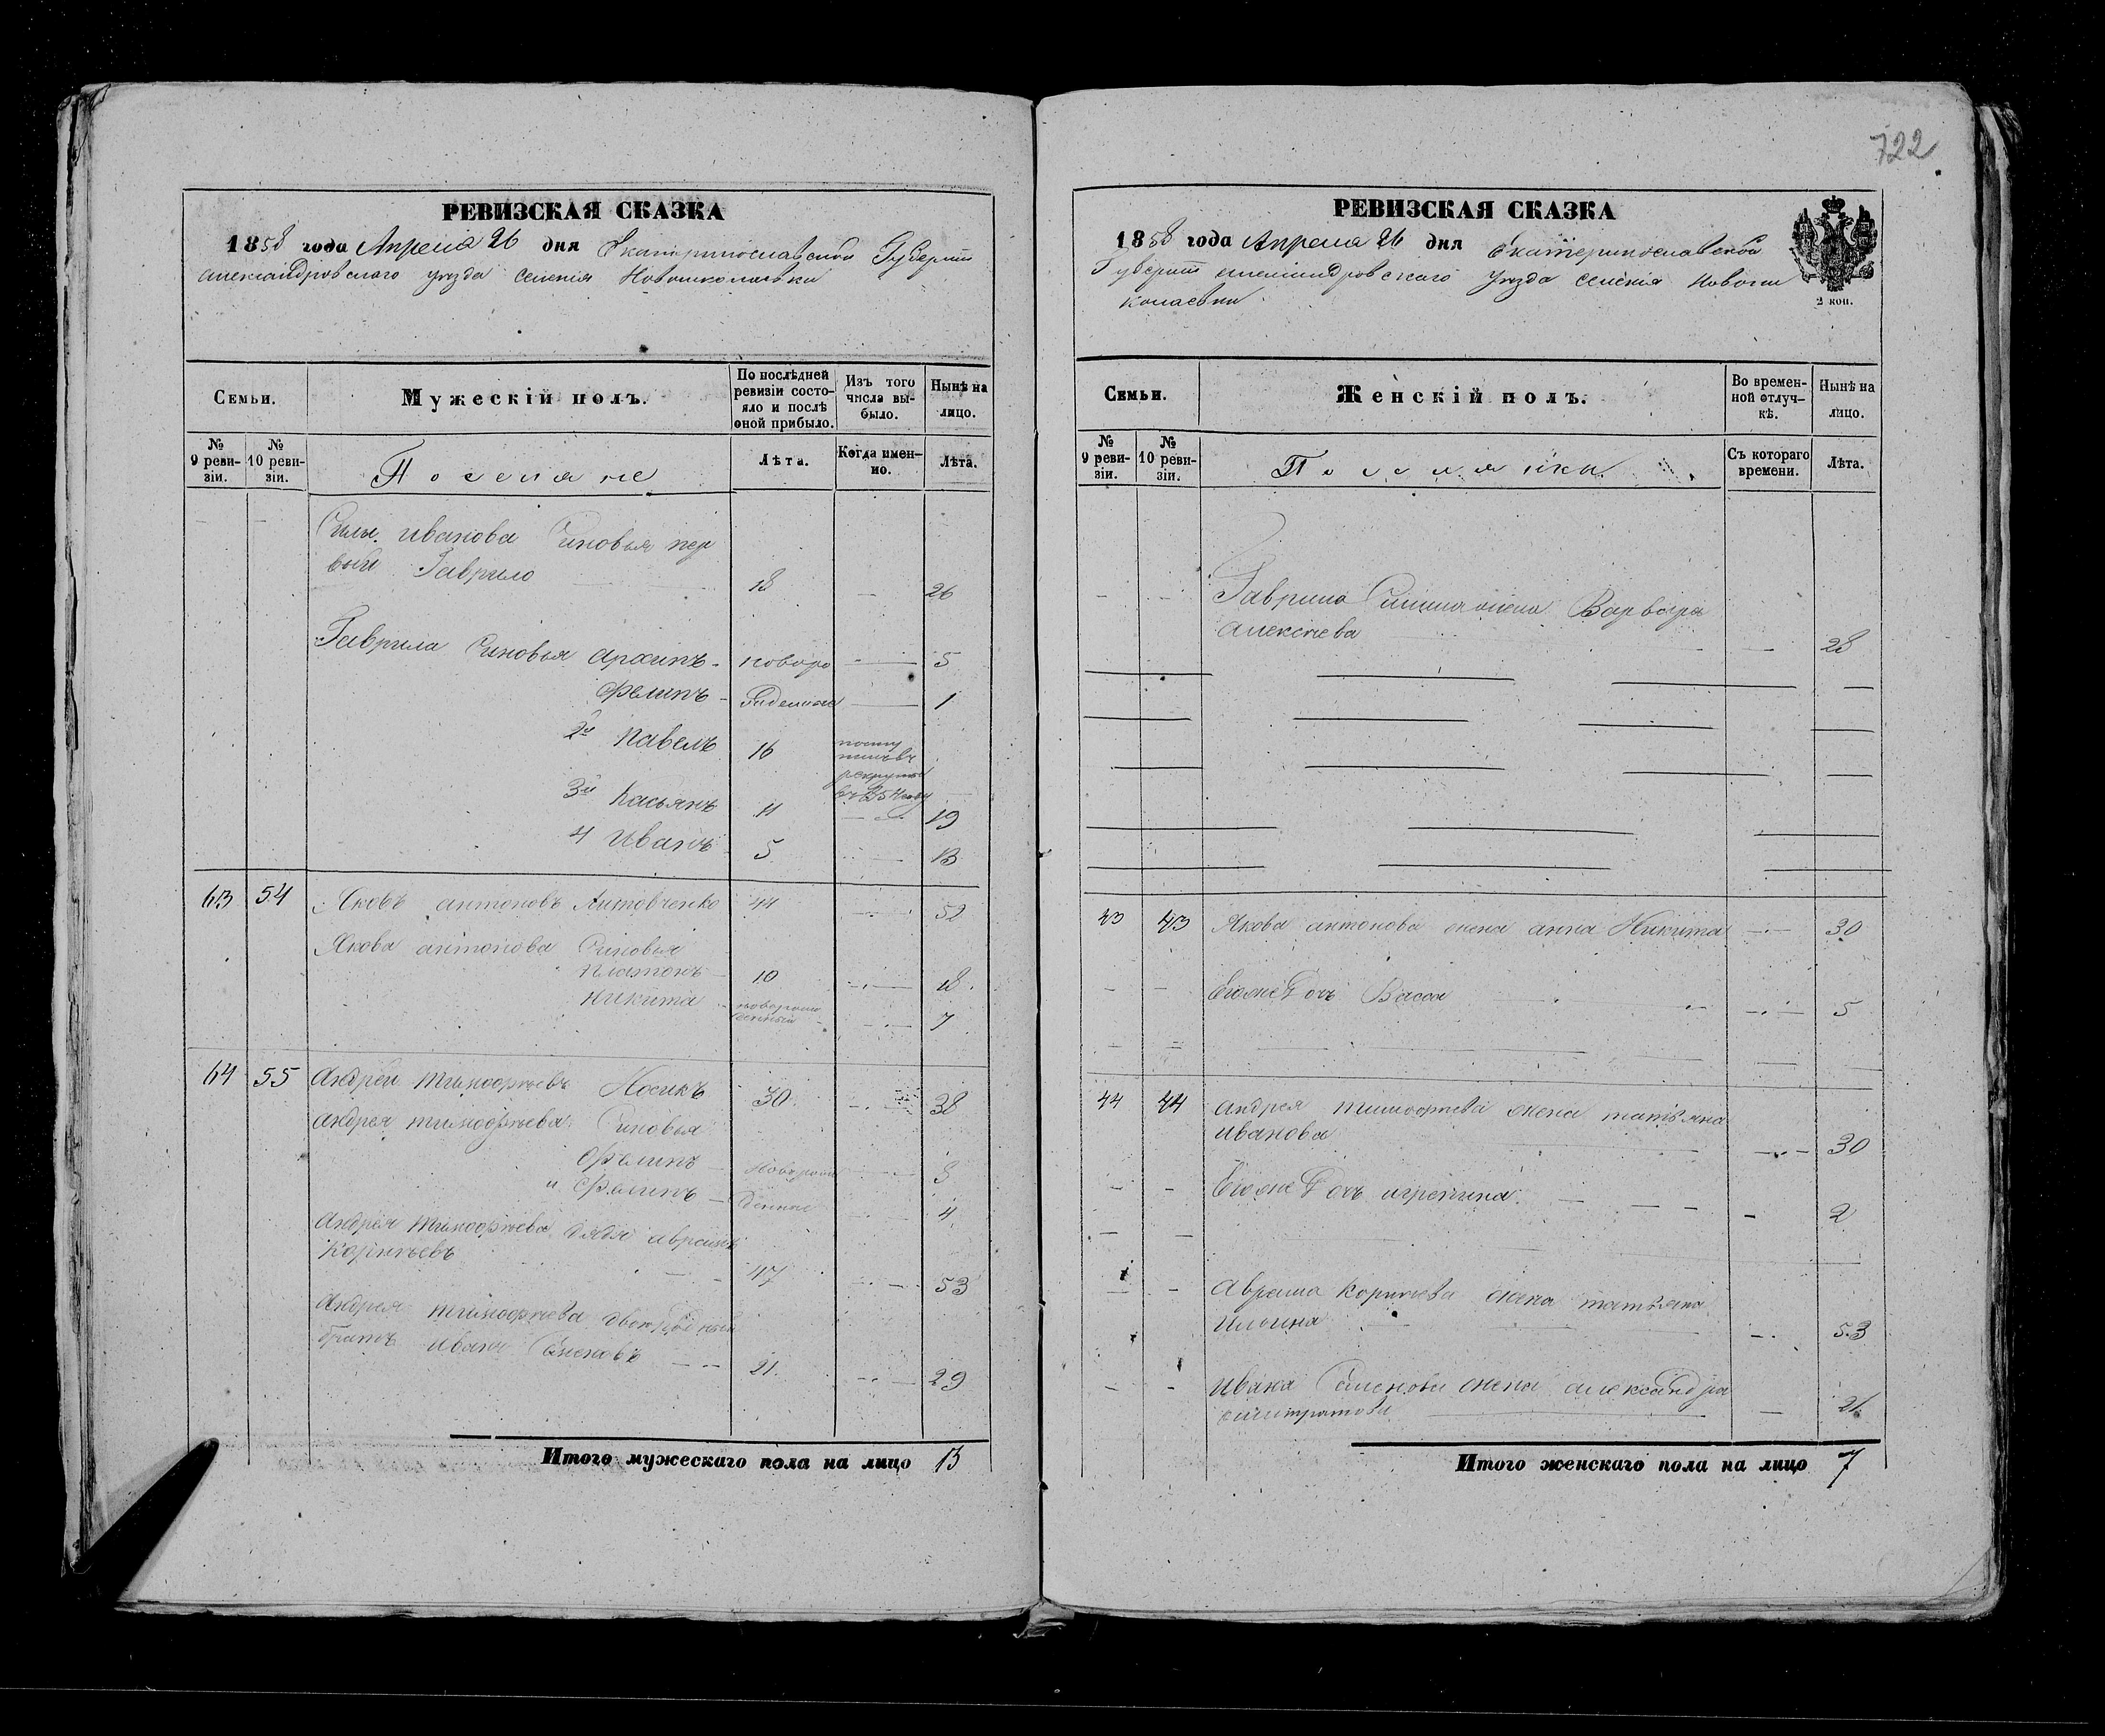 722
РЕВИЗСКАЯ СКАЗКА
1858 года Апреля 26 дня Екатеринославской Губернии
александровскаго уезда селения Новониколаевки
Семьи.
Мужескій полъ.
По послѣдней ревизіи состо-
яло и послѣ
оной прибыло.
Изъ того
числа вы-
было.
Нынѣ на
лицо.
№
9 реви-
зіи.
№
10 реви-
зіи.
Поселяне
Лѣта.
Когда имен-
но.
Лѣта.
Силы иванова Сыновья пер
вый Гаврило 18 26
Гаврила Сыновья архипъ новоро 5
Филипъ жденные 1
2й Павелъ 16
посту
пилъ въ
рекруты
3й Касьянъ 11 19
4 иванъ 5 13
63 54 Яковъ антоновъ 44 52
Якова антонова Сыновья
Платонъ 10 18
Никита 7
64 55 Андрей тимофеевъ Носикъ 30 38
андрея тимофеева Сыновья
Филипъ Новорож 8
и Филипъ денные 4
андрея тимофеева дядя аврамъ
Корнеевъ 47 53
андрея тимофеева двоюродный
братъ иванъ Семеновъ 21 29
Итого мужескаго пола на лицо 13
РЕВИЗСКАЯ СКАЗКА
1858 года Апреля 26 дня Екатеринославской
Губернии александровскаго уезда селения Новони
колаевки
2 коп.
Семьи.
Женскій полъ.
Во времен-
ной отлуч-
кѣ.
Нынѣ на
лицо.
№
9 реви-
зіи.
№
10 реви-
зіи.
Поселянки
Съ котораго
времени.
Лѣта.
Гаврила Силина жена Варвара
алексеева 28
43 43 Якова антонова жена анна Никитина 30
Ево же дочь Васса 5
44 44 андрея тимофеева жена татьяна
иванова 30
Ево же дочь 2
аврама корнеева жена татьяна
ильина 53
ивана Семенова жена александра
21
Итого женскаго пола на лицо 7